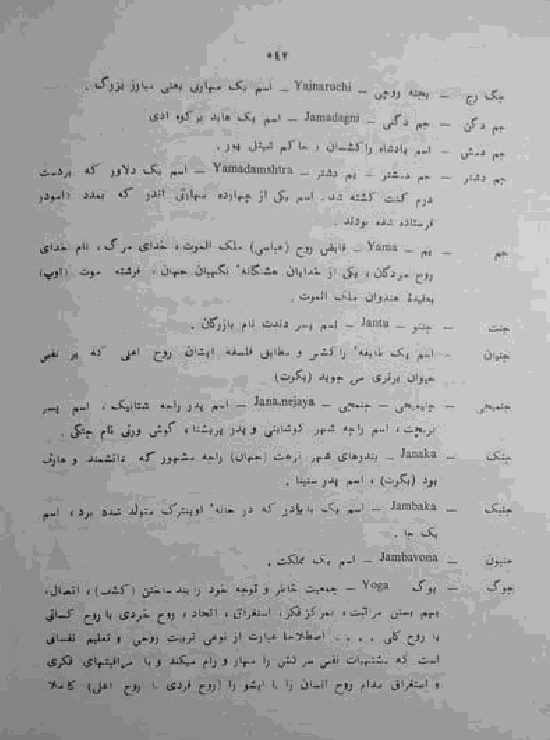 ٥٤٧
جگ رچ — یجنه روچی — Yajnaruchi — اسم یک مهارتی یعنی مبارز بزرگ .
جم دگن — جم دگنی — Jamadagni — اسم یک عابد برکوه ادی
جم دسش — اسم پادشاه راکشسان و حاکم شیتل پور .
جم دشتر — جم دسشتر — یم دشتر — Yamadamshtra — اسم یک دلاور که بردست
درم کنت کشته شد. اسم یکی از چهارده مهارتی اندر که بمدد دامودر
فرستاده شده بودند .
جم — یم — Yama — قابض روح (عباسی) ملک الموت، خدای مرگ، نام خدای
روح مردگان، یکی از خدایان هشتگانه نگهبان جهان، فرشته موت (اوپ)
بعقیدهٔ هندوان ملک الموت .
جنت — جنتو — Jantu — اسم پسر دندت نام بازرگان .
جنیان — اسم یک طایفه راکشس و مطابق فلسفه ایشان روح اعلی که بر نفس
حیوان برتری می جوید (بگوت)
جنمیجی — جنمیجی — جنمجی — Janamejaya — اسم پدر راجه شتانیک، اسم پسر
پریچت، اسم راجه شهر کوشانبی و پدر پریشتا، گوش ورتی نام جنگی .
جنک — Janaka — بندرهای شهر ترهت (جهان) راجه مشهور که دانشمند و عارف
بود (بگوت) ، اسم پدر سیتا .
جنبک — Jambaka — اسم یک بابرادر که در خانه اوینترک متولد شده بود، اسم
یک جا .
جنبون — Jambavona — اسم یک مملکت .
جوگ — یوگ Yoga — جمعیت خاطر و توجه خود را بند ساختن (کشف)، اتصال،
بهم بستن مراتبت، تمرکز فکر، استغراق، اتحاد، روح خردی با روح کسانی
یا روح کلی .... اصطلاحا عبارت از نوعی تربیت روحی و تعلیم نفسانی
است که مشتهیات نفس سرکش را مهار و رام میکند و با مراقبتهای فکری
و استغراق مدام روح انسان را با ایشور را (روح فردی با روح اعلی) کاملا